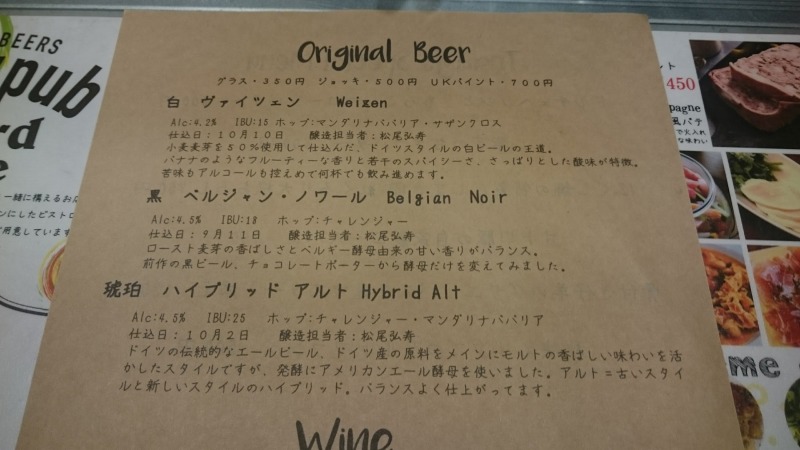 BEERS
pub
rd
e
一緒に構えるお店
ンにしたビストロ
ご用意しています
Original Beer
グラス・350円 ジョッキ・500円 UKパイント・700円
白 ヴァイツェン Weizen
Alc:4.2% IBU:15 ホップ:マンダリナババリア・サザンクロス
仕込日:10月10日 醸造担当者:松尾弘寿
小麦麦芽を50%使用して仕込んだ、ドイツスタイルの白ビールの王道。
バナナのようなフルーティーな香りと若干のスパイシーさ、さっぱりとした酸味が特徴。
苦味もアルコールも控えめで何杯でも飲み進めます。
黒 ベルジャン・ノワール Belgian Noir
Alc:4.5% IBU:18 ホップ:チャレンジャー
仕込日:9月11日 醸造担当者:松尾弘寿
ロースト麦芽の香ばしさとベルギー酵母由来の甘い香りがバランス。
前作の黒ビール、チョコレートポーターから酵母だけを変えてみました。
琥珀 ハイブリッド アルト Hybrid Alt
Alc:4.5% IBU:25 ホップ:チャレンジャー・マンダリナババリア
仕込日:10月2日 醸造担当者:松尾弘寿
ドイツの伝統的なエールビール、ドイツ産の原料をメインにモルトの香ばしい味わいを活
かしたスタイルですが、発酵にアメリカンエール酵母を使いました。アルト=古いスタイ
ルと新しいスタイルのハイブリッド。バランスよく仕上がってます。
Wine
ント
450
pagne
風パテ
me